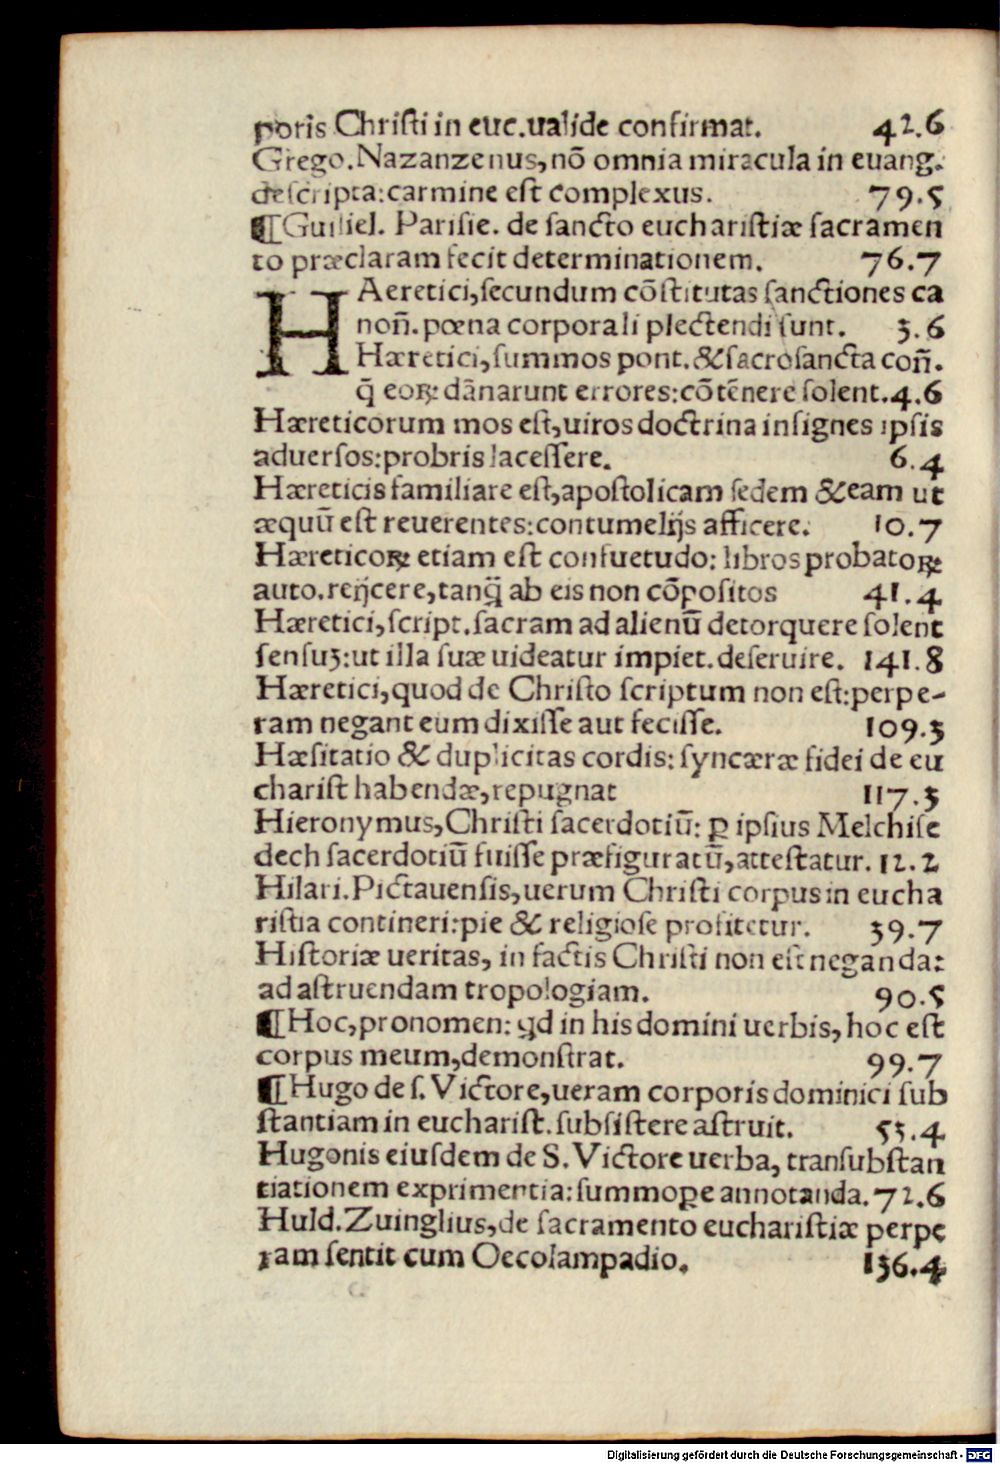 poris Chriſti in euc.ualide confirmat. 42.6
Grego.Nazanzenus,nō omnia miracula in euang.
deſcripta:carmine eſt complexus. 79.5
¶Guiliel. Pariſie. de ſancto euchariſtiæ ſacramen
to præclaram fecit determinationem. 76.7
HAeretici,ſecundum cōſtitutas ſanctiones ca
non̄.pœna corporali plectendi ſunt. 3.6
Hæretici,ſummos pont.&ſacroſancta con̄.
q̄ eoꝝ dānarunt errores:cōtēnere ſolent.4.6
Hæreticorum mos eſt,uiros doctrina inſignes ipſis
aduerſos:probris laceſſere. 6.4
Hæreticis familiare eſt,apoſtolicam ſedem &eam ut
æquū eſt reuerentes:contumelijs afficere. 10.7
Hæreticoꝝ etiam eſt conſuetudo: libros probatoꝝ
auto.reijcere,tanq̄ ab eis non cōpoſitos 41.4
Hæretici,ſcript.ſacram ad alienū detorquere ſolent
ſenſuꝫ:ut illa ſuæ uideatur impiet.deſeruire. 141.8
Hæretici,quod de Chriſto ſcriptum non eſt:perpe-
ram negant eum dixiſſe aut feciſſe. 109.3
Hæſitatio & duplicitas cordis: ſyncæræ fidei de eu
chariſt habendæ,repugnat 117.3
Hieronymus,Chriſti ſacerdotiū: ꝑ ipſius Melchiſe
dech ſacerdotiū fuiſſe præfiguratū,atteſtatur. 12.2
Hilari.Pictauenſis,uerum Chriſti corpus in eucha
riſtia contineri:pie & religioſe profitetur. 39.7
Hiſtoriæ ueritas, in factis Chriſti non eſt neganda:
ad aſtruendam tropologiam. 90.5
¶Hoc,pronomen: qd in his domini uerbis, hoc eſt
corpus meum,demonſtrat. 99.7
¶Hugo de ſ. Victore,ueram corporis dominici ſub
ſtantiam in euchariſt.ſubſiſtere aſtruit. 53.4
Hugonis eiuſdem de S. Victore uerba, tranſubſtan
tiationem exprimentia:ſummoꝑe annotanda.72.6
Huld.Zuinglius,de ſacramento euchariſtiæ perpe
ram ſentit cum Oecolampadio. 136.4
Digitalisierung gefördert durch die Deutsche Forschungsgemeinschaft - DFG